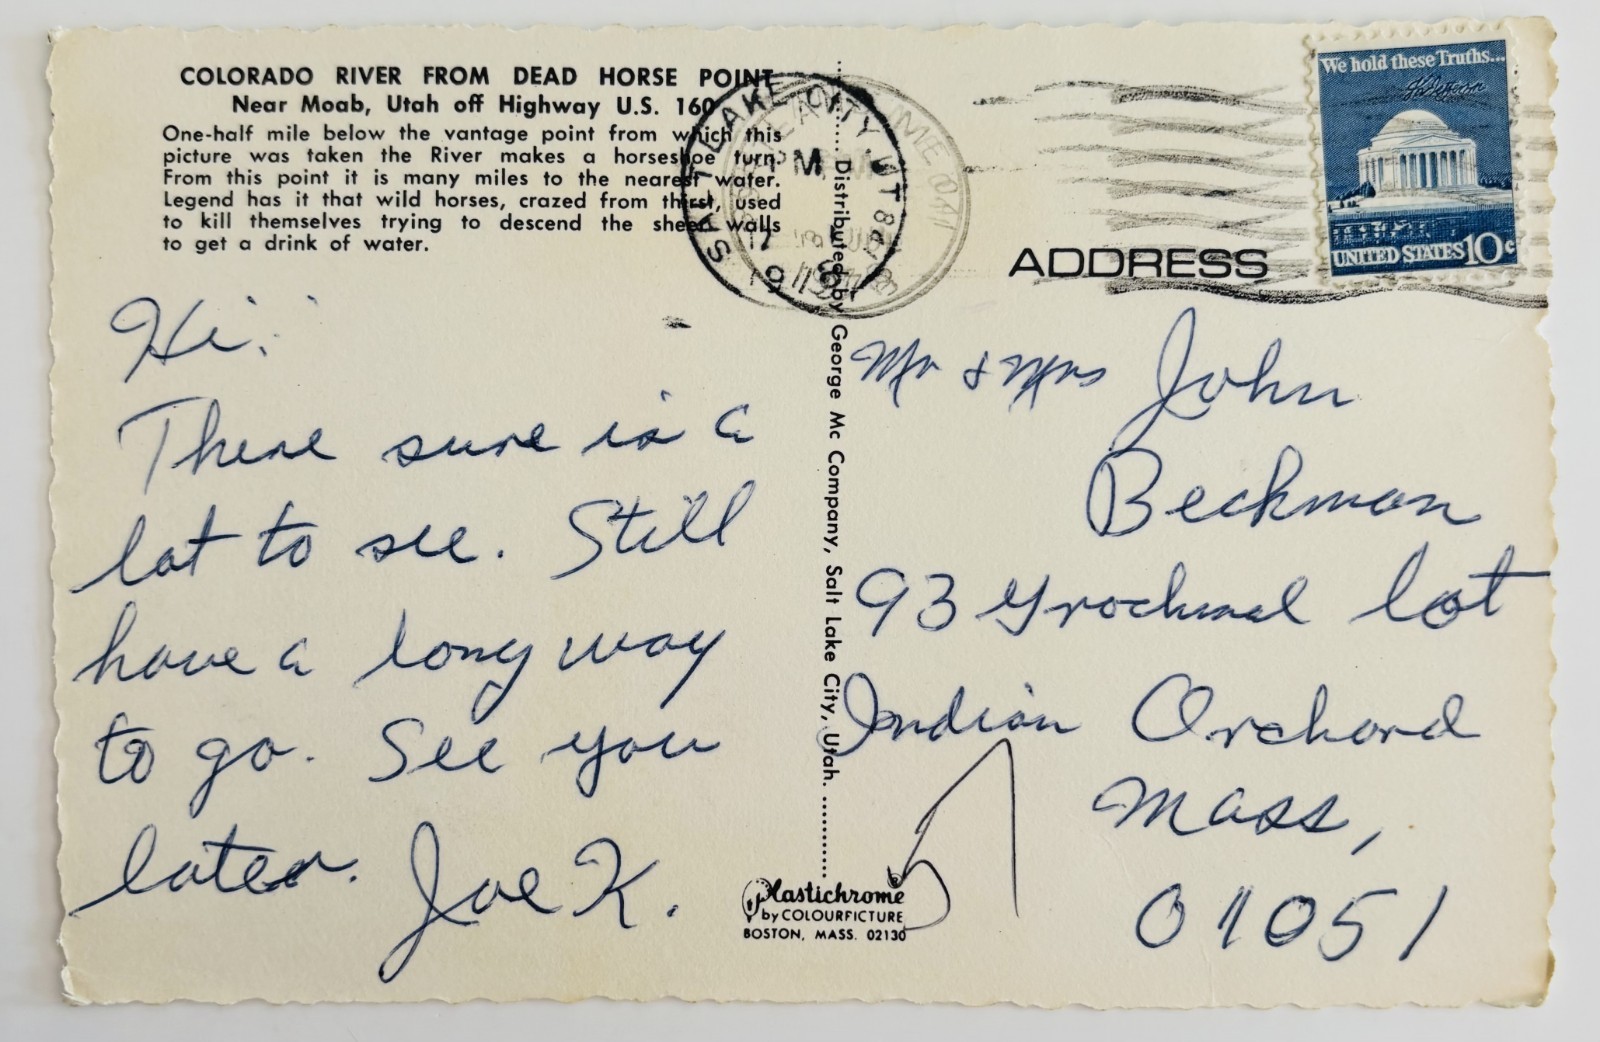 COLORADO RIVER FROM DEAD HORSE POINT
Near Moab, Utah off Highway U.S. 160
One-half mile below the vantage point from which this
picture was taken the River makes a horseshoe turn.
From this point it is many miles to the nearest water.
Legend has it that wild horses, crazed from thirst, used
to kill themselves trying to descend the sheer walls
to get a drink of water.
Hi.
There sure is a
lot to see. Still
have a long way
to go. See you
later. Joe K.
SALT LAKE CITY, UT 841
PM
Distributed by George Mc Company, Salt Lake City, Utah.
Plastichrome
by COLOURPICTURE
BOSTON, MASS. 02130
We hold these Truths...
Jefferson
UNITED STATES 10c
ADDRESS
Mr & Mrs John
Beckman
93 Grochmal lot
Indian Orchard
Mass,
01051